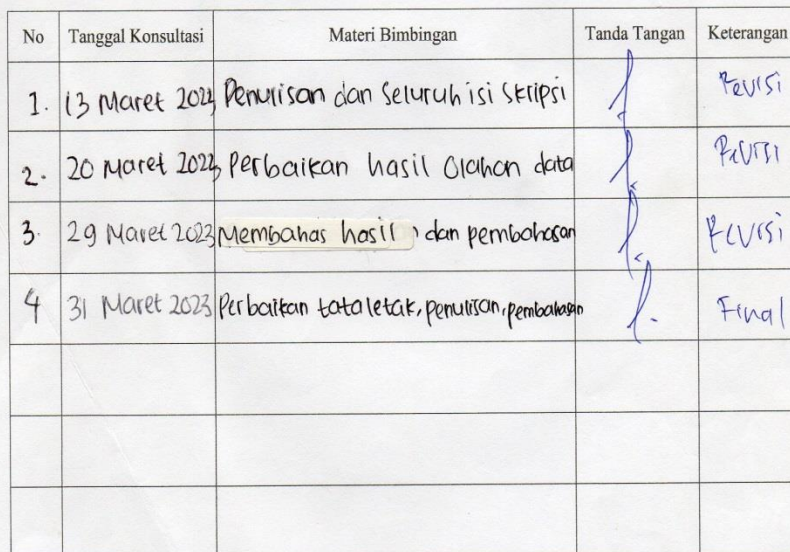 No Tanggal Konsultasi Materi Bimbingan Tanda Tangan Keterangan
1. 13 Maret 2023 Penulisan dan Seluruh isi Skripsi Revisi
2. 20 Maret 2023 Perbaikan hasil Olahan data Revisi
3. 29 Maret 2023 Membahas hasil dan pembahasan Revisi
4 31 Maret 2023 Perbaikan tata letak, penulisan, pembahasan Final